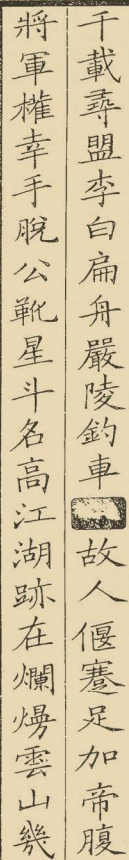 千載尋盟李白扁舟嚴陵釣車故人偃蹇足加帝腹
將軍權幸手脫公靴星斗名高江湖跡在爛熳雲山幾